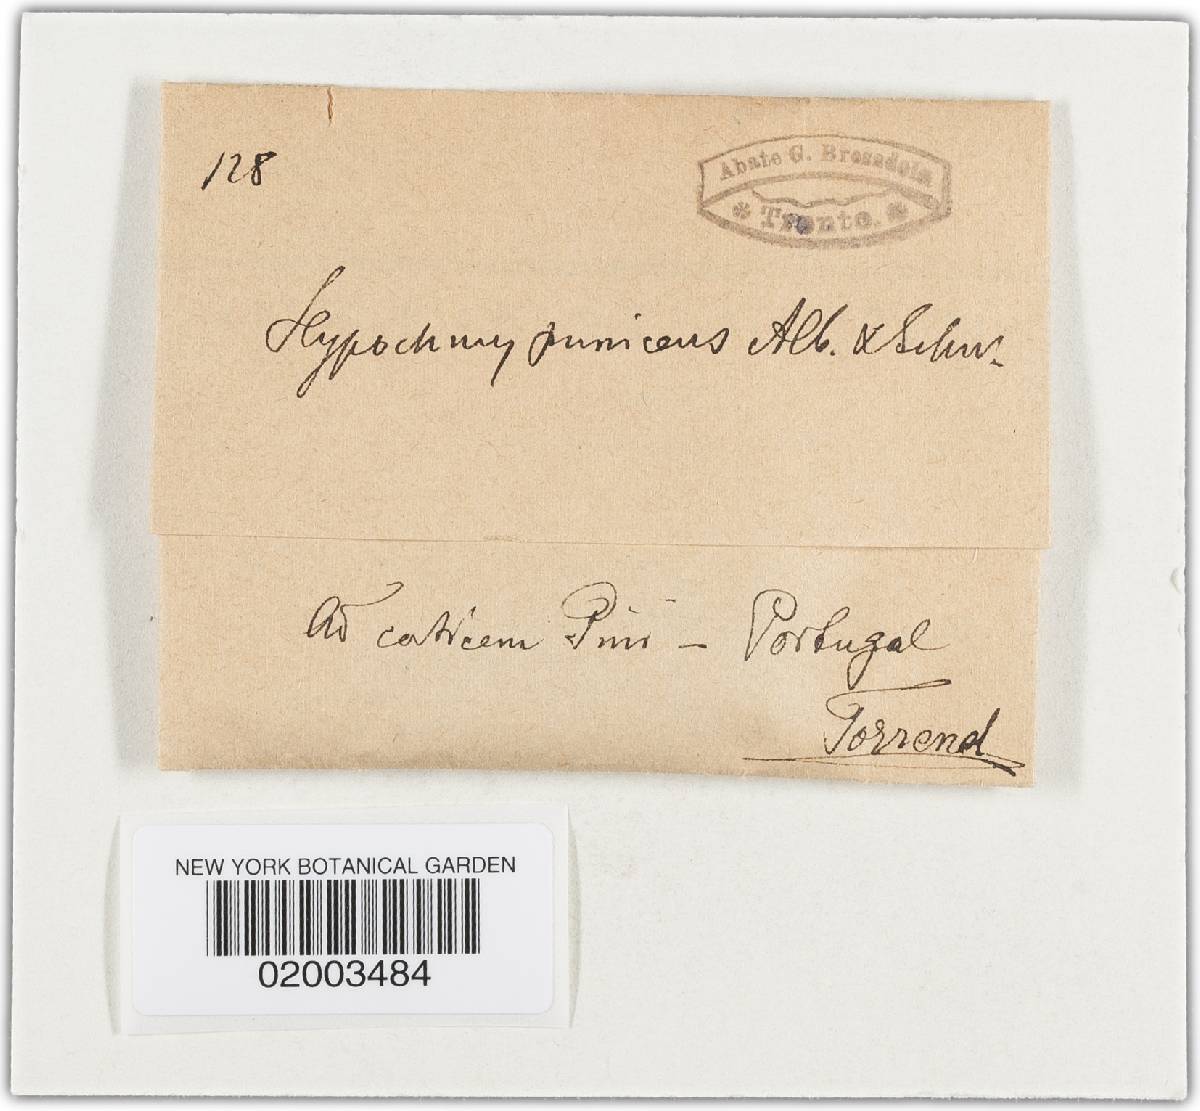 128
Abate G. Bresadola
* Trento. *
Hypochnus puniceus Alb. & Schw.
Ad corticem Pini — Portugal
Torrend
NEW YORK BOTANICAL GARDEN
02003484